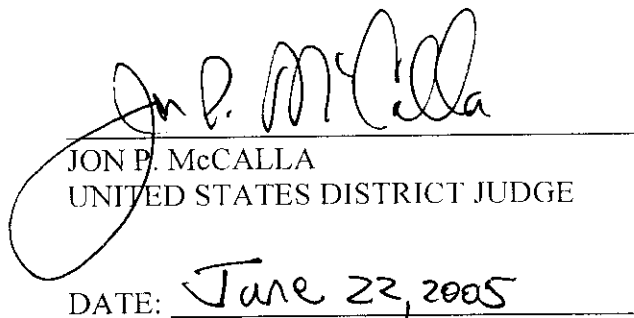 Jon P. McCalla
JON P. McCALLA
UNITED STATES DISTRICT JUDGE
DATE: June 22, 2005